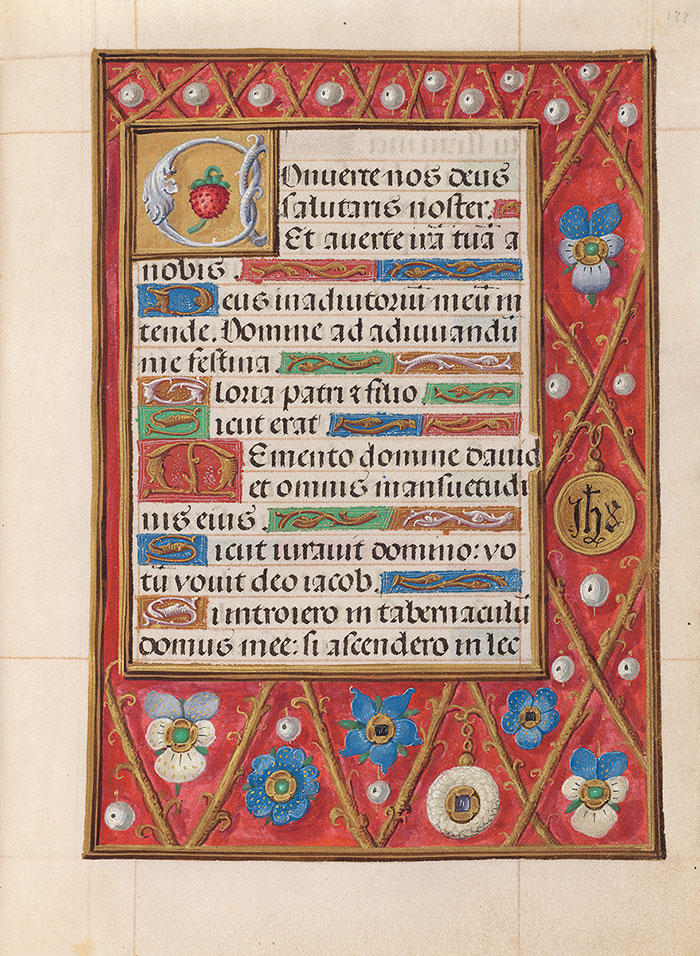 COnuerte nos deus
salutaris noster.
Et auerte irā tuā a
nobis
Deus in adiutoriū meū in
tende. Domine ad adiuuandū
me festina
Gloria patri ⁊ filio
Sicut erat
MEmento domine dauid
et omnis mansuetudi
nis eius.
Sicut iurauit domino: vo
tū vouit deo iacob.
Si introiero in tabernaculū
domus mee: si ascendero in lec
ihs